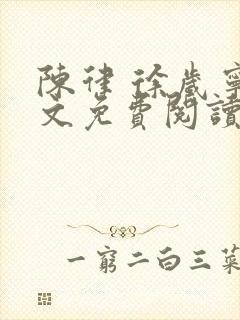 陳律 徐歲寧
文免費閱讀
一窮二白三菜